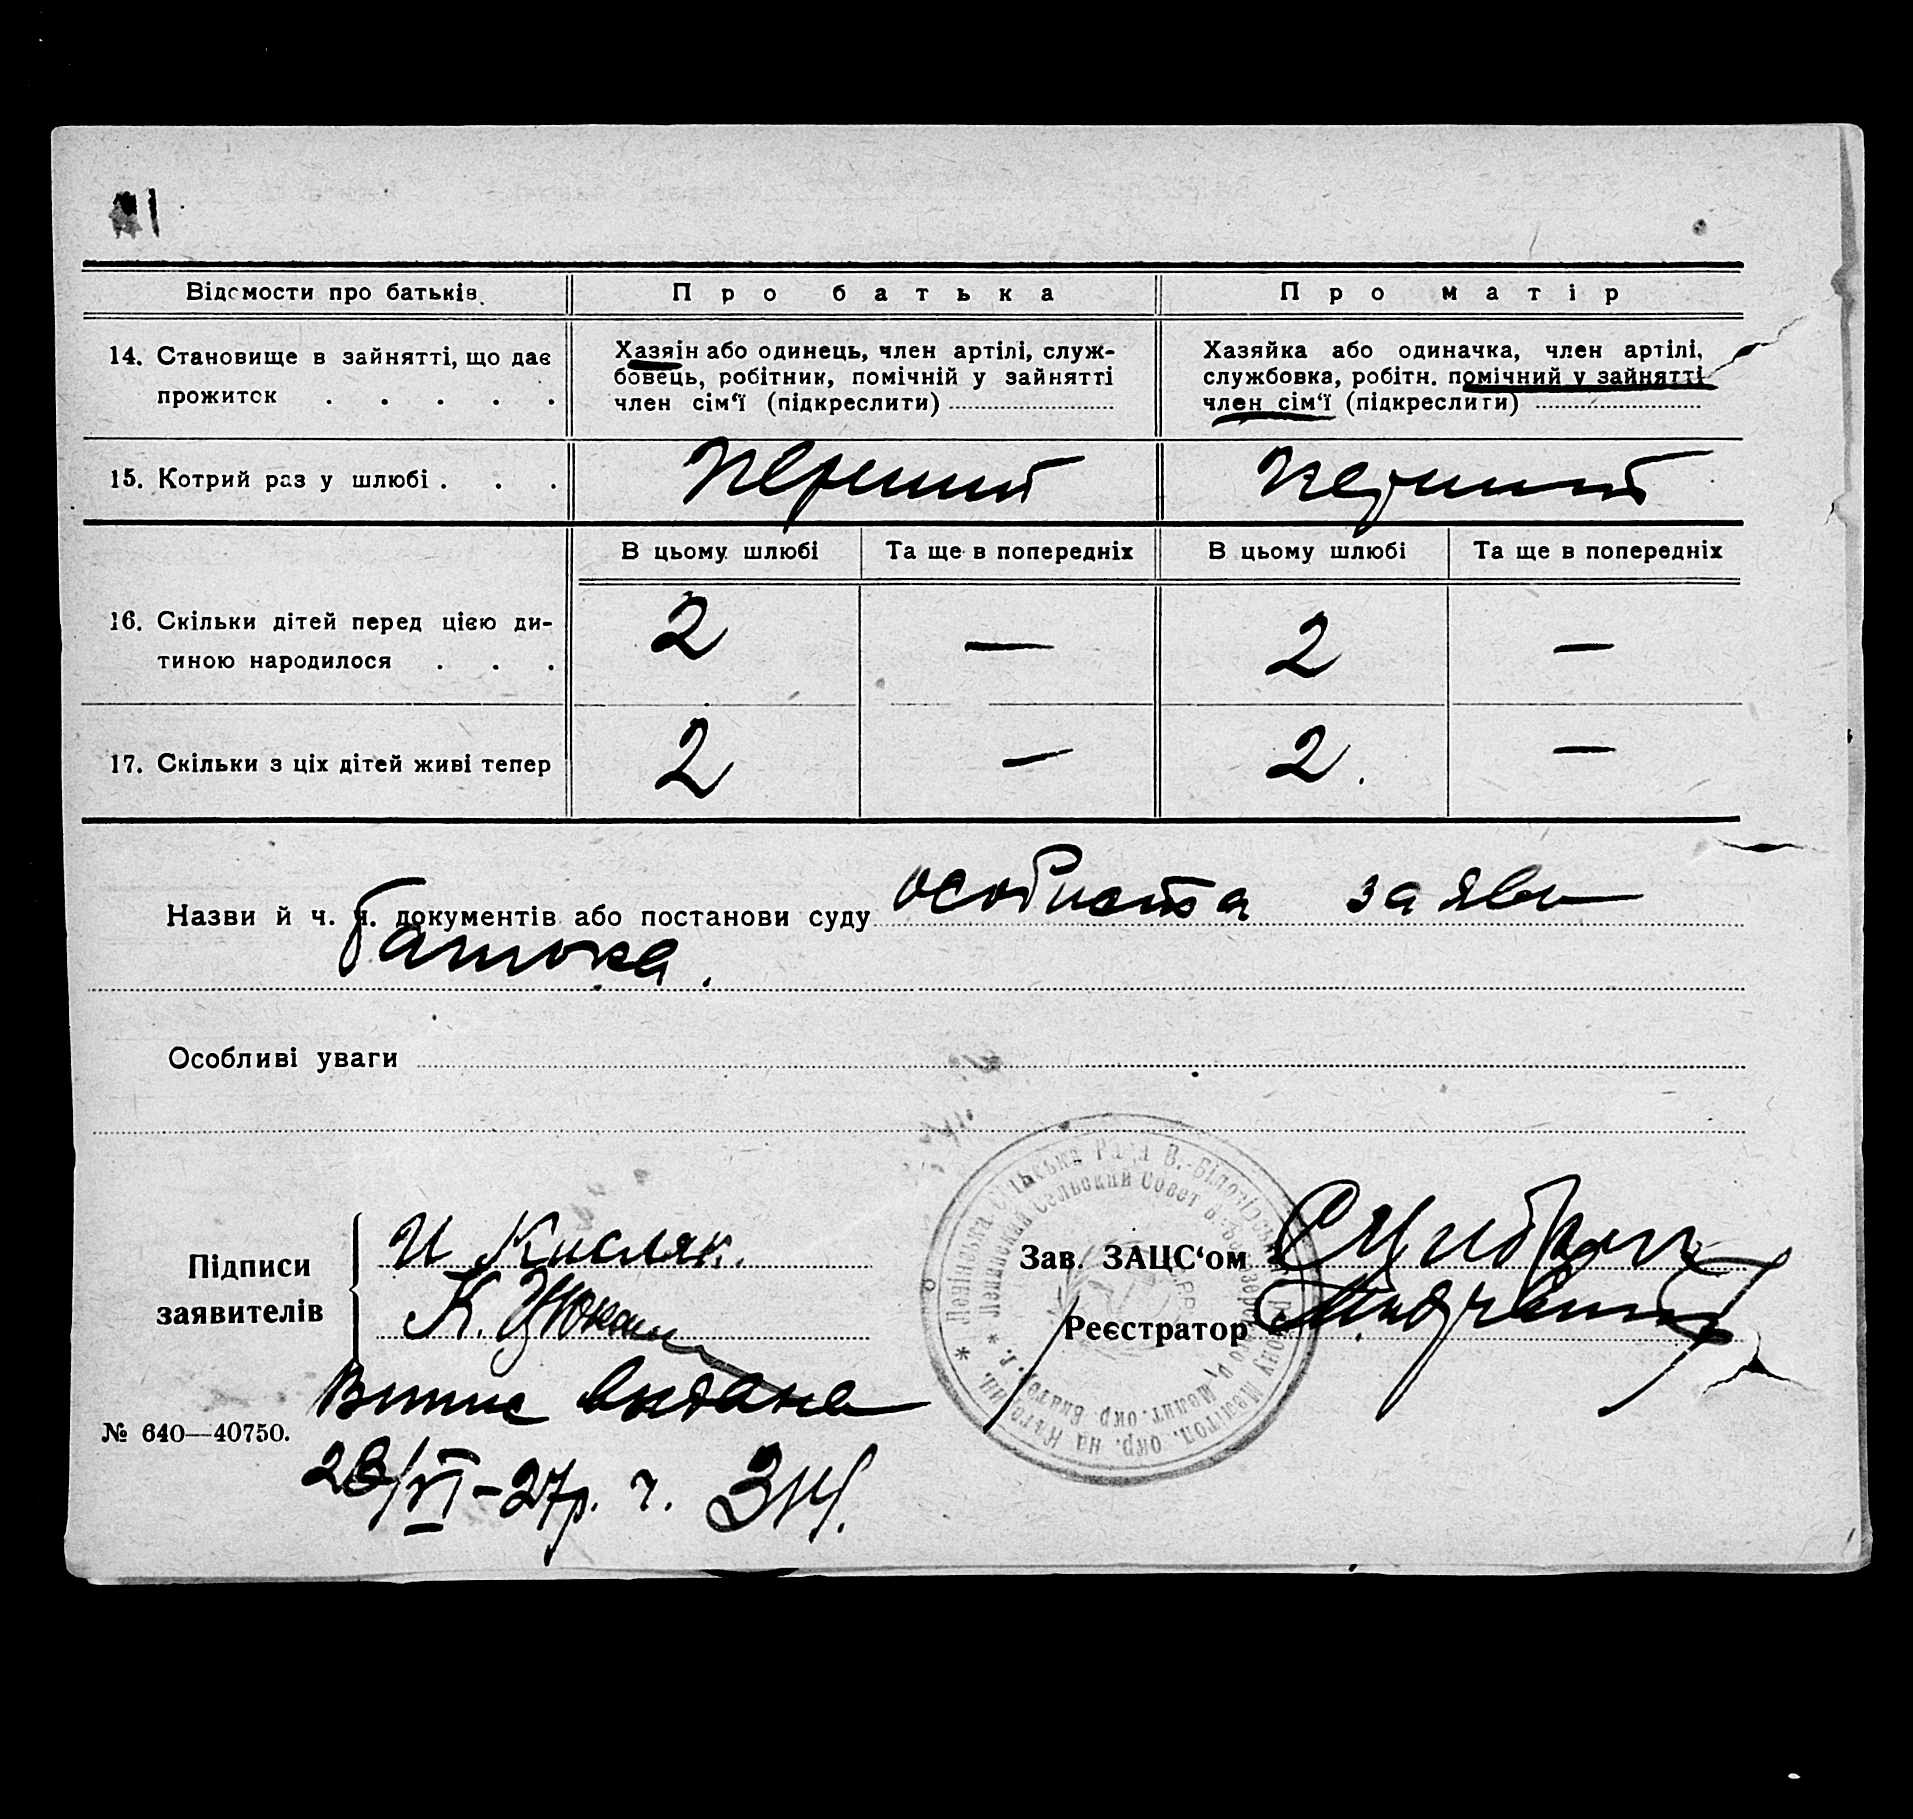 Відомости про батьків.
Про батька
Про матір
14. Становище в зайнятті, що дає
прожиток . . . . .
Хазяін або одинець, член артілі, служ-
бовець, робітник, помічній у зайнятті
член сім‘ї (підкреслити)
Хазяйка або одиначка, член артілі,
службовка, робітн. помічний у зайнятті
член сім‘ї (підкреслити)
15. Котрий раз у шлюбі . . .
перший
перший
В цьому шлюбі
Та ще в попередніх
В цьому шлюбі
Та ще в попередніх
16. Скільки дітей перед цією ди-
тиною народилося . . .
2
—
2
—
17. Скільки з ціх дітей живі тепер
2
—
2.
—
Назви й ч. ч. документів або постанови суду особиста заява
батька.
Особливі уваги
Підписи
заявителів
И Кисляк.
К.
Зав. ЗАЦС‘ом
Реєстратор
Ленінська Сільська Рада В.-Білозірськ району Мелітоп. окр. на Катерин.
Ленинский Сельский Совет В.-Белозерского р. Мелит. окр.
Випис видана
№ 640—40750.
28/VI-27р. г.